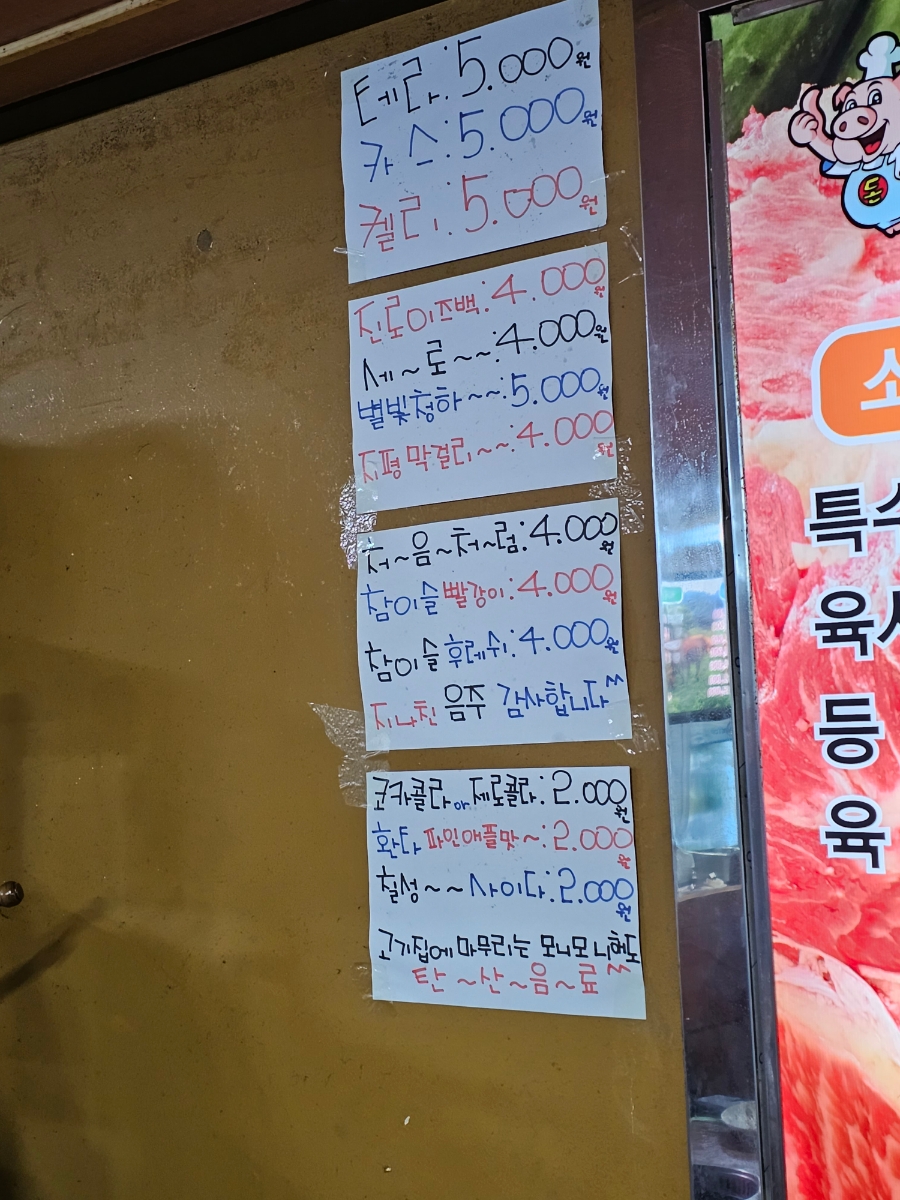 테라:5.000원
카스:5.000원
켈리:5.000원
진로이즈백:4.000원
새~로~~:4.000원
별빛청하~~:5.000원
지평막걸리~~:4.000원
처~음~처~럼:4.000원
참이슬빨강이:4.000원
참이슬후레쉬:4.000원
지나친 음주 감사합니다^^
코카콜라or제로콜라:2.000원
환타파인애플맛~:2.000원
칠성~~사이다:2.000원
고기집에 마무리는 모니모니해도
탄~산~음~료^^
돈
특수
육
등
육